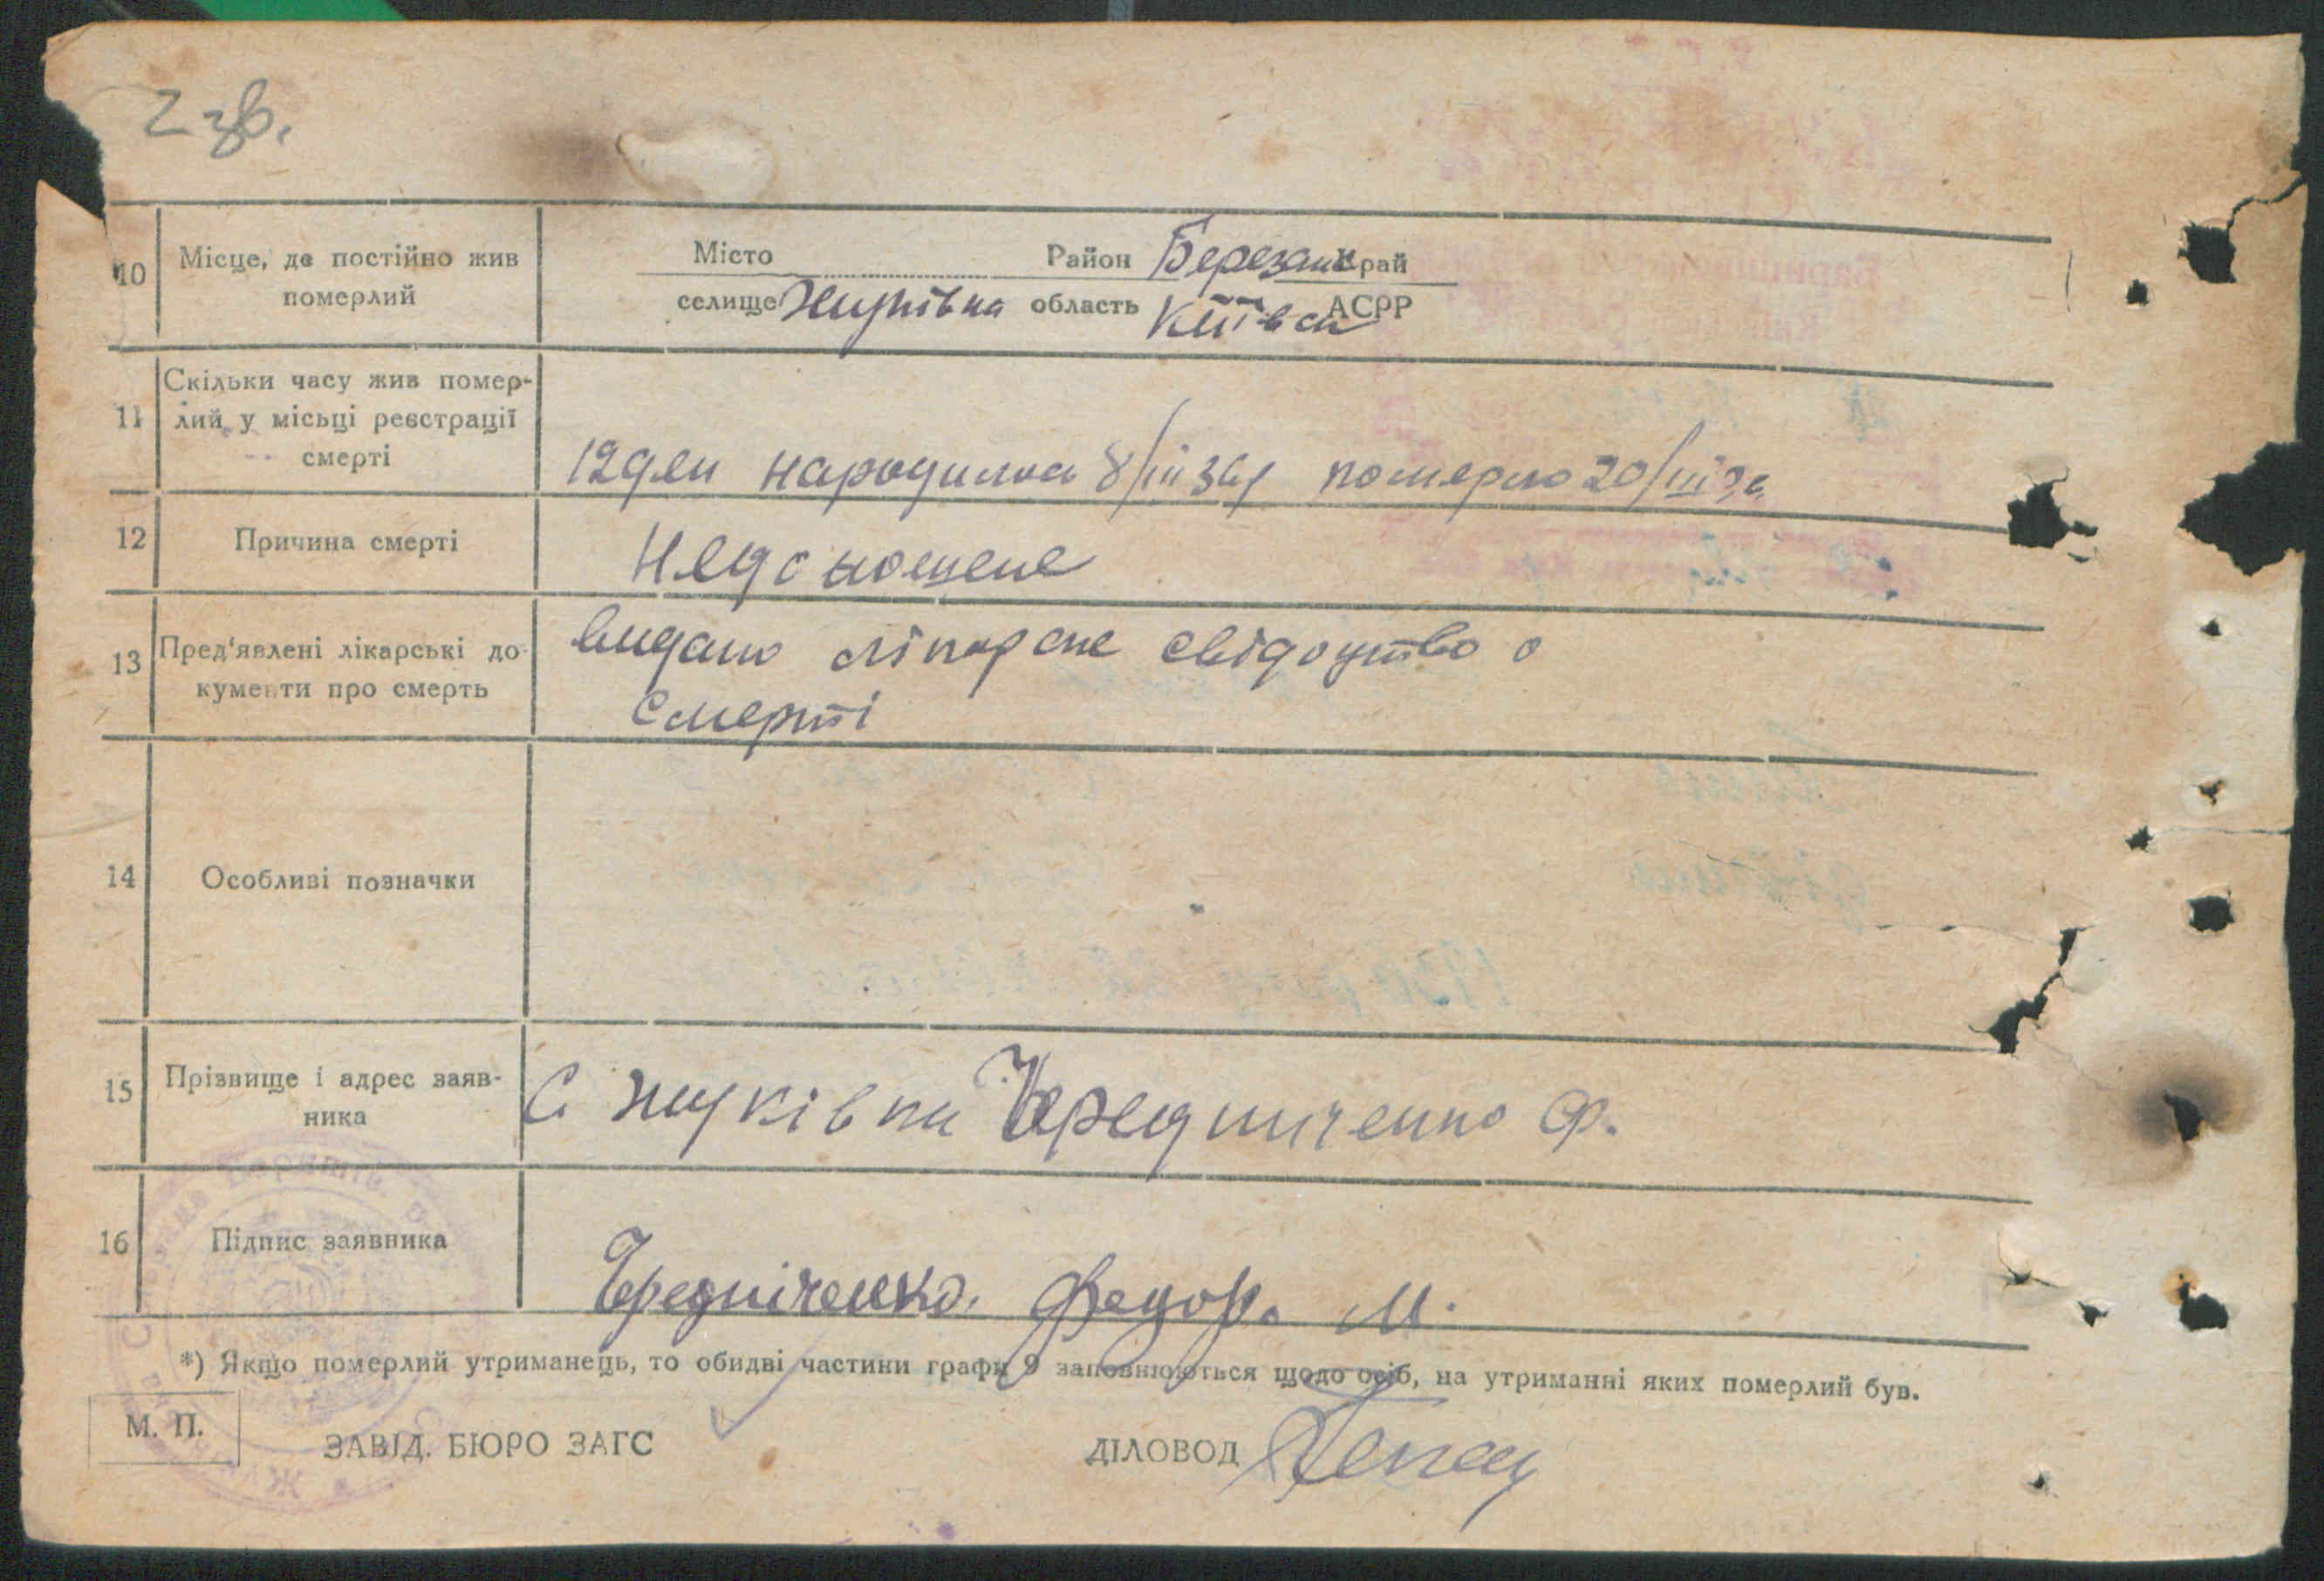 2 зв.
10 Місце, де постійно жив померлий
Місто Район Березанс край
селище Жуківка область Київськ АСРР
11 Скільки часу жив помер-
лий у місьці реєстрації
смерті
12 дли народилось 8/III 36 р померло 20/III 36
12 Причина смерті Недоношене
13 Пред'явлені лікарські до-
кументи про смерть
видано лікарске свідоцтво о
смерті
14 Особливі позначки
15 Прізвище і адрес заяв-
ника
С Жуківка Чередниченко Ф.
16 Підпис заявника
Чередніченко. Федор. М.
*) Якщо померлий утриманець, то обидві частини графи 9 заповнюються щодо осіб, на утриманні яких померлий був.
М. П.
ЗАВІД. БЮРО ЗАГС ДІЛОВОД